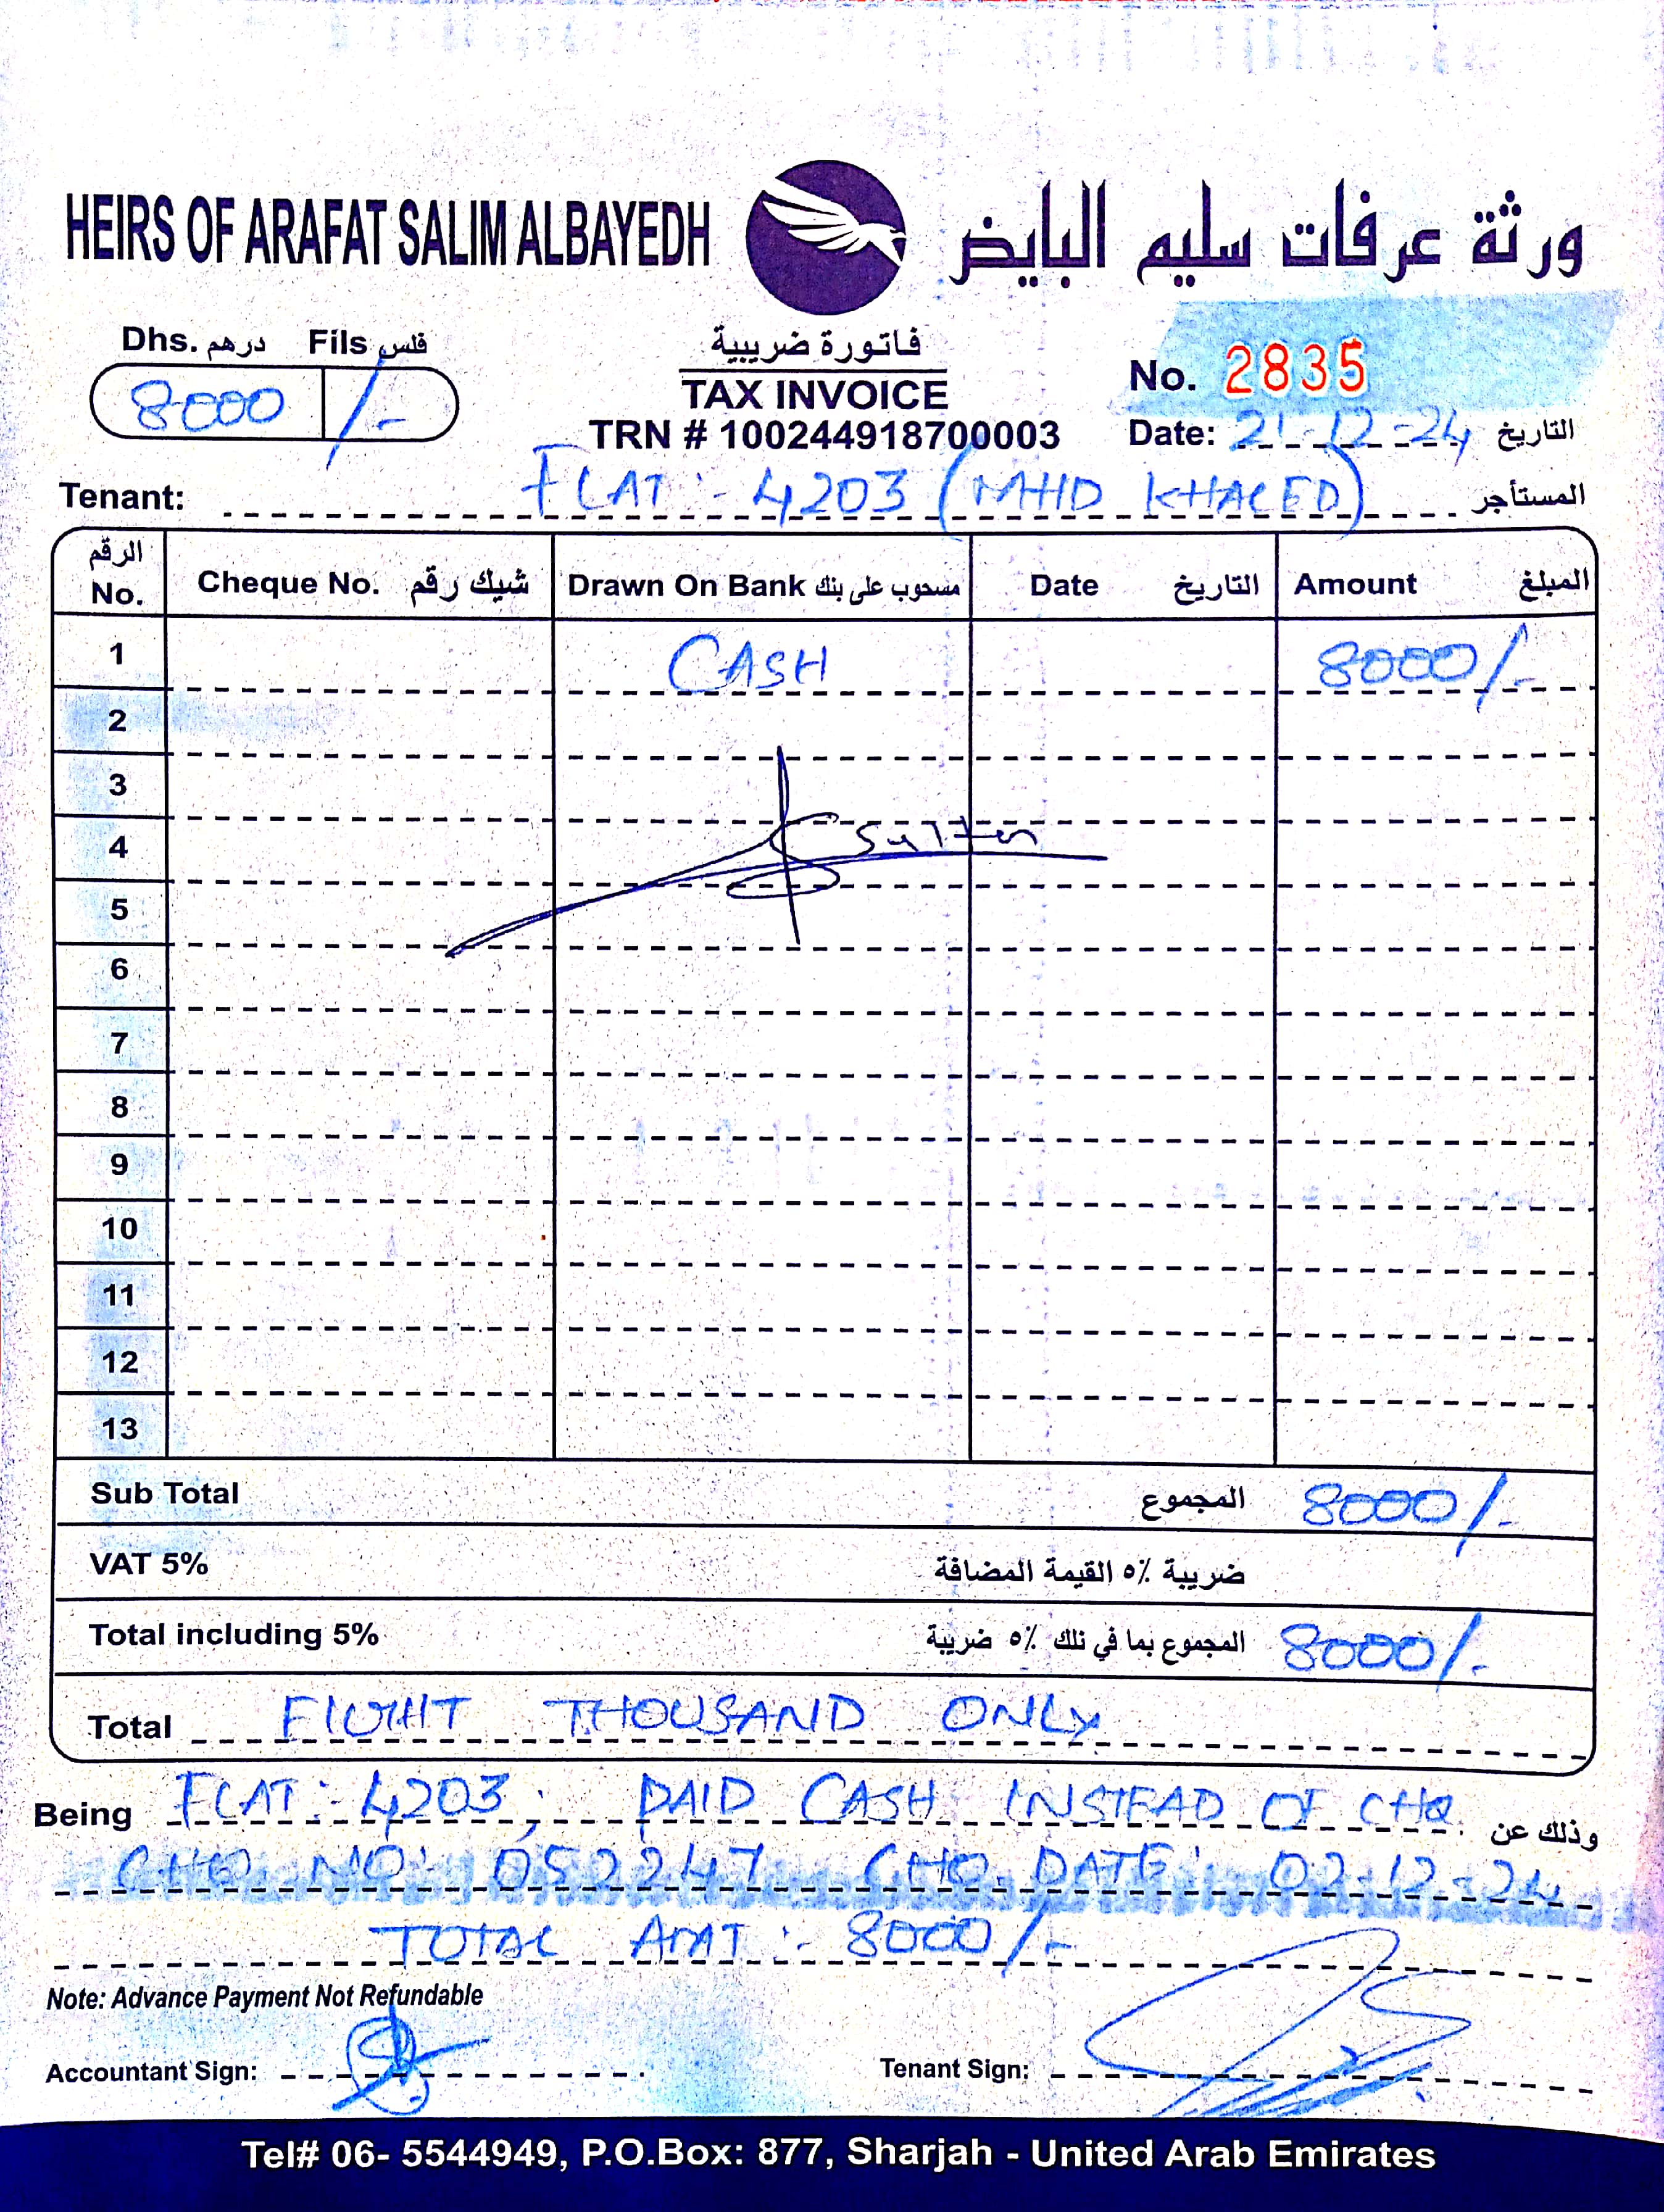 HEIRS OF ARAFAT SALIM ALBAYEDH ورثة عرفات سليم البايض
Dhs. درهم Fils فلس
8000 /-
فاتورة ضريبية
TAX INVOICE
TRN # 100244918700003
No. 2835
Date: 21-12-24 التاريخ
Tenant: FLAT :- 4203 (MHD KHALED) المستأجر
الرقم No. Cheque No. شيك رقم Drawn On Bank مسحوب على بنك Date التاريخ Amount المبلغ
1 CASH 8000/-
2
3
4 Sultan
5
6
7
8
9
10
11
12
13
Sub Total المجموع 8000/-
VAT 5% ضريبة ٥٪ القيمة المضافة
Total including 5% المجموع بما في ذلك ٥٪ ضريبة 8000/-
Total EIGHT THOUSAND ONLY
Being FLAT:- 4203, PAID CASH INSTEAD OF CHQ. وذلك عن
CHQ. NO: 052247 CHQ. DATE: 02-12-24
TOTAL AMT :- 8000/-
Note: Advance Payment Not Refundable
Accountant Sign: Tenant Sign:
Tel# 06- 5544949, P.O.Box: 877, Sharjah - United Arab Emirates